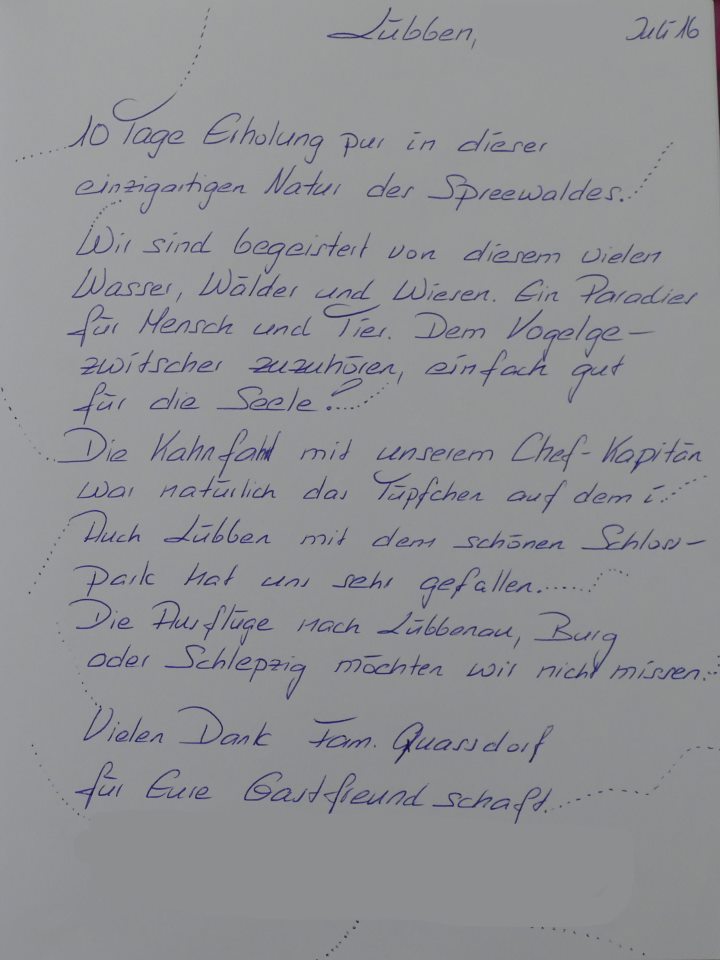 Lübben, Juli 16
10 Tage Erholung pur in dieser
einzigartigen Natur des Spreewaldes.
Wir sind begeistert von diesem vielen
Wasser, Wälder und Wiesen. Ein Paradies
für Mensch und Tier. Dem Vogelge-
zwitscher zuzuhören, einfach gut
für die Seele!
Die Kahnfahrt mit unserem Chef-Kapitän
war natürlich das Tüpfchen auf dem i.
Auch Lübben mit dem schönen Schloss-
park hat uns sehr gefallen.
Die Ausflüge nach Lübbenau, Burg
oder Schlepzig möchten wir nicht missen.
Vielen Dank Fam. Quassdorf
für Eure Gastfreundschaft.